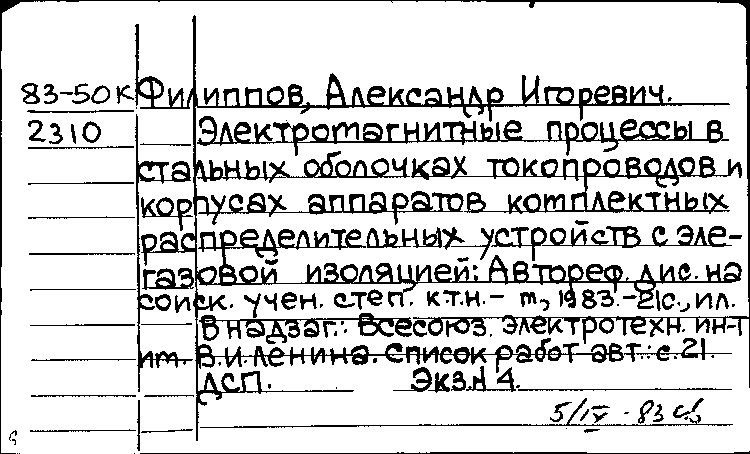 83-50К Филиппов, Александр Игоревич.
2310 Электромагнитные процессы в
стальных оболочках токопроводов и
корпусах аппаратов комплектных
распределительных устройств с эле-
газовой изоляцией: Автореф. дис. на
соиск. учен. степ. к.т.н. - м, 1983. - 21с., ил.
В надзаг.: Всесоюз. электротехн. ин-т
им. В.И.Ленина. Список работ авт.: с. 21.
ДСП. Экз.N 4.
5/IV - 83